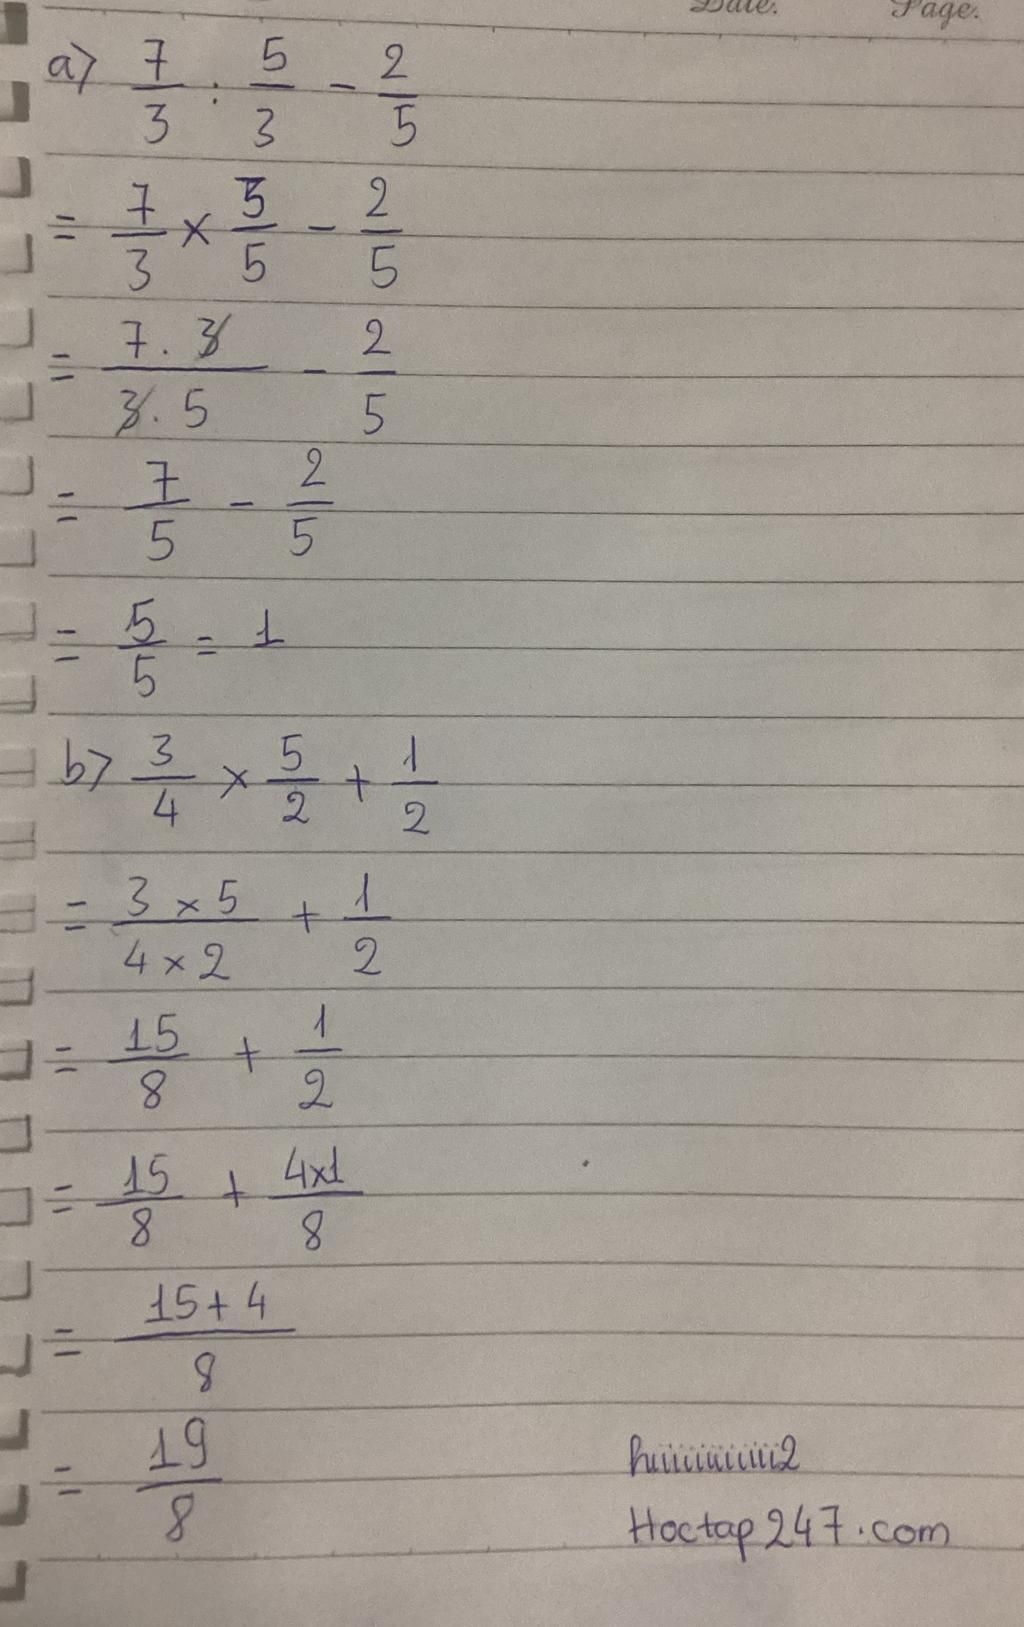 Date. Page.
a> 7/3 : 5/3 - 2/5
= 7/3 × 3/5 - 2/5
= 7 . 3/3 . 5 - 2/5
= 7/5 - 2/5
= 5/5 = 1
b> 3/4 × 5/2 + 1/2
= 3 × 5/4 × 2 + 1/2
= 15/8 + 1/2
= 15/8 + 4x1/8
= 15 + 4/8
= 19/8
Hoctap247.com